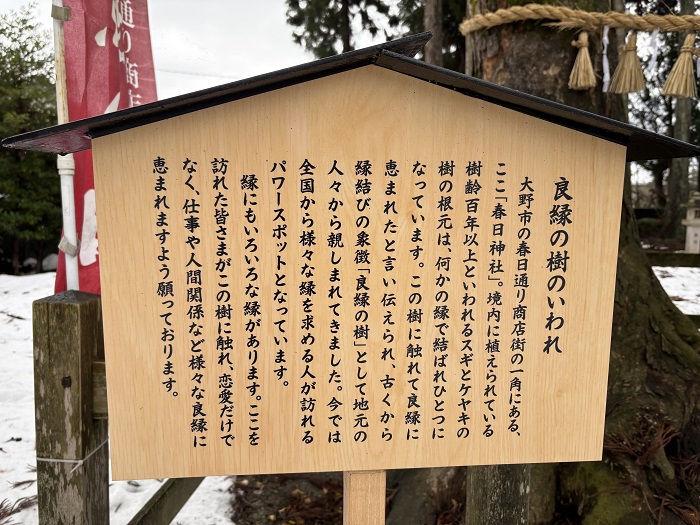 良縁の樹のいわれ
大野市の春日通り商店街の一角にある、
ここ「春日神社」。境内に植えられている
樹齢百年以上といわれるスギとケヤキの
樹の根元は、何かの縁で結ばれひとつに
なっています。この樹に触れて良縁に
恵まれたと言い伝えられ、古くから
縁結びの象徴「良縁の樹」として地元の
人々から親しまれてきました。今では
全国から様々な縁を求める人が訪れる
パワースポットとなっています。
縁にもいろいろな縁があります。ここを
訪れた皆さまがこの樹に触れ、恋愛だけで
なく、仕事や人間関係など様々な良縁に
恵まれますよう願っております。
通り商店